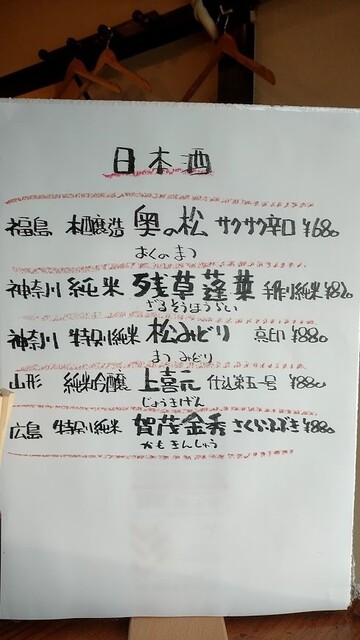 日本酒
福島 本醸造 奥の松 サクサク辛口 ¥680
おくのまつ
神奈川 純米 残草蓬莱 特別純米 ¥820
ざるそうほうらい
神奈川 特別純米 松みどり 京印 ¥880
まつみどり
山形 純米吟醸 上喜元 仕込第五一号 ¥880
じょうきげん
広島 特別純米 賀茂金秀 さくら ¥880
かもきんしゅう